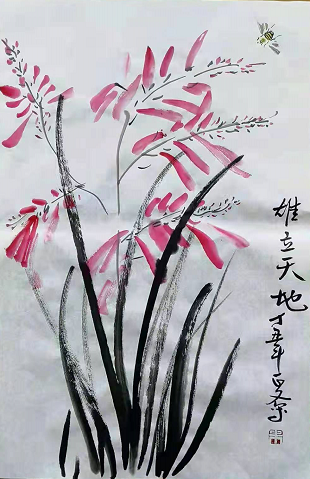 雄立天地丁丑年